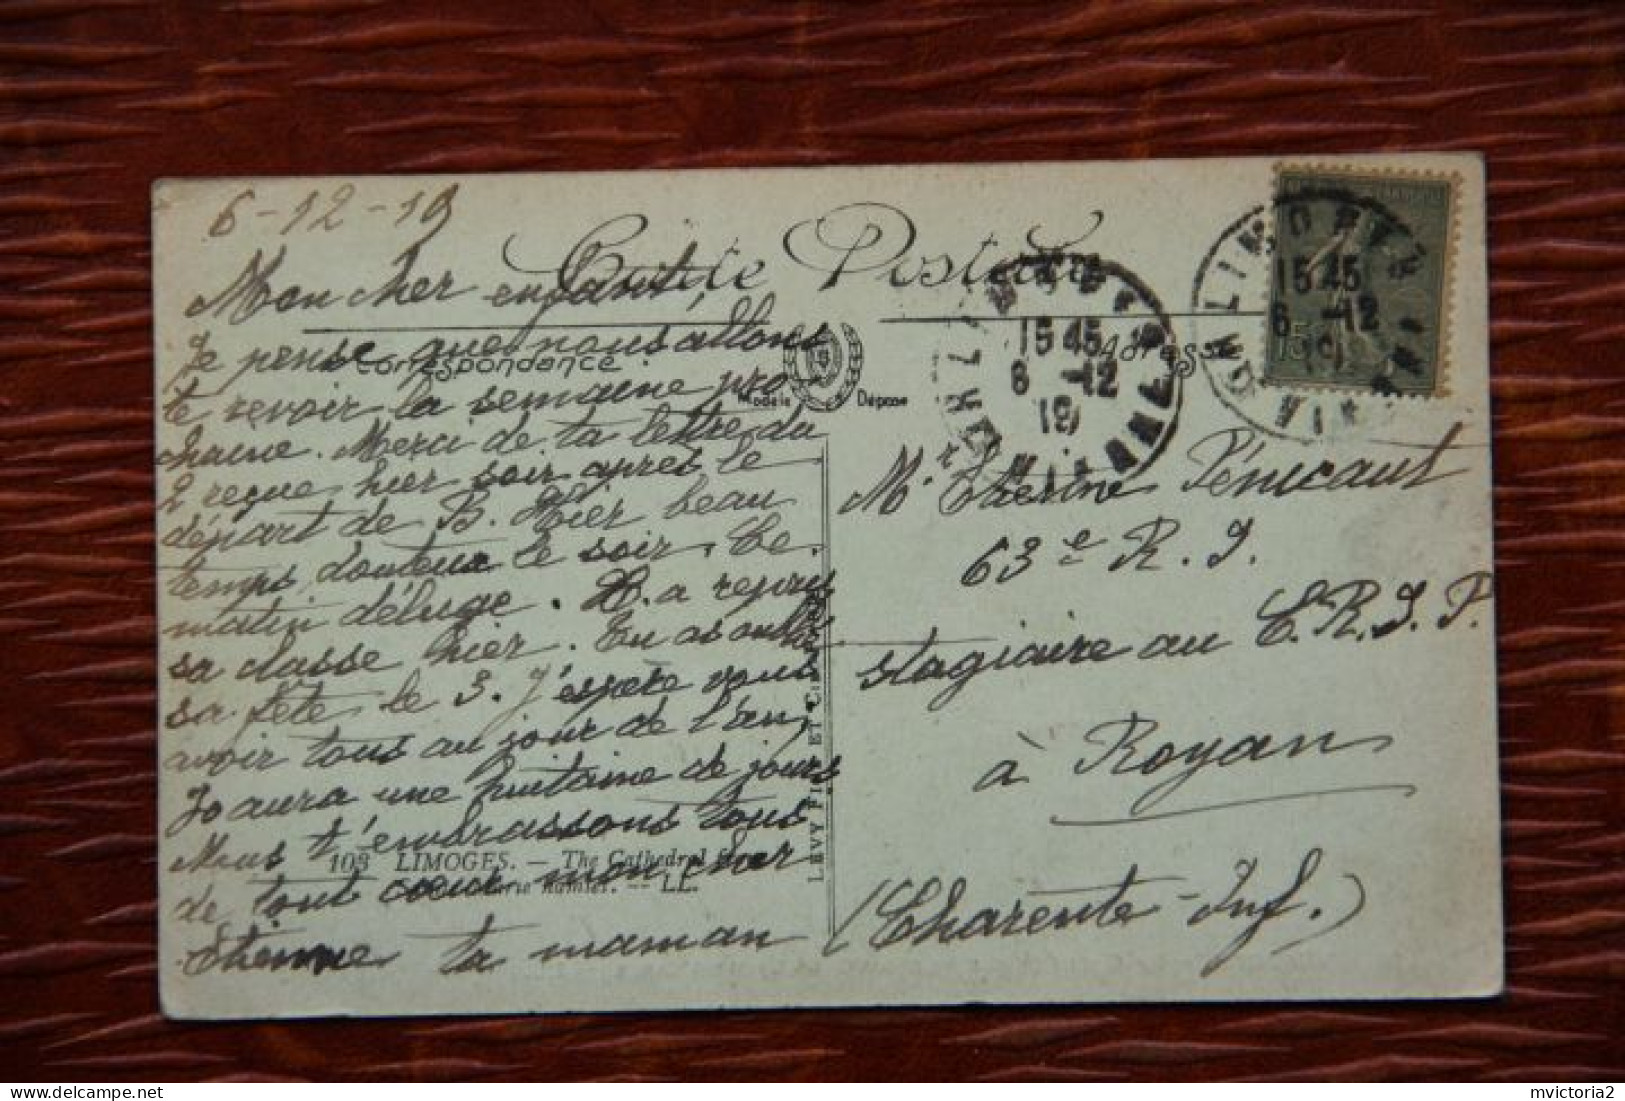 6-12-19
Carte Postale
Mon cher enfant,
Correspondance
Adresse
Modèle Déposé
Je pense que nous allons
te revoir la semaine pro-
chaine. Merci de ta lettre du
2 reçue hier soir après le
départ de B. Hier beau
temps douteux le soir. Ce
matin déluge. H. a repris
sa classe hier. Tu as oublié
sa fête le 3. J'espère vous
avoir tous au jour de l'an,
Jo aura une huitaine de jours
Nous t'embrassons tous
de tout coeur mon cher
Etienne ta maman
103 LIMOGES. — The Cathedral
hamlet. — LL.
LEVY FILS ET Cie
LIMOGES
15 45
6 -12
19
HTE VIENNE
LIMOGES
15 45
6 -12
19
15
Mr Etienne Pénicaut
63e R. I.
stagiaire au C. R. I. P.
à Royan
(Charente-Inf.)
mvictoria2